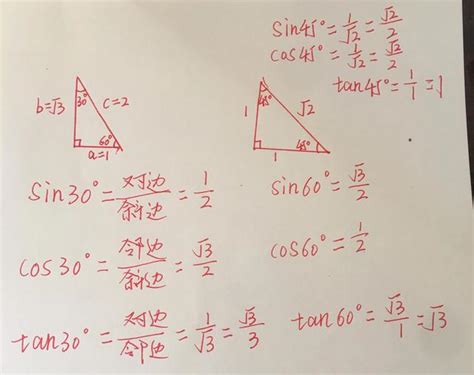 sin45°=1/√2=√2/2
cos45°=1/√2=√2/2
tan45°=1/1=1
b=√3 30° c=2
60°
a=1
45°
1 √2
45°
1
sin30°=对边/斜边=1/2
sin60°=√3/2
cos30°=邻边/斜边=√3/2
cos60°=1/2
tan30°=对边/邻边=1/√3=√3/3
tan60°=√3/1=√3